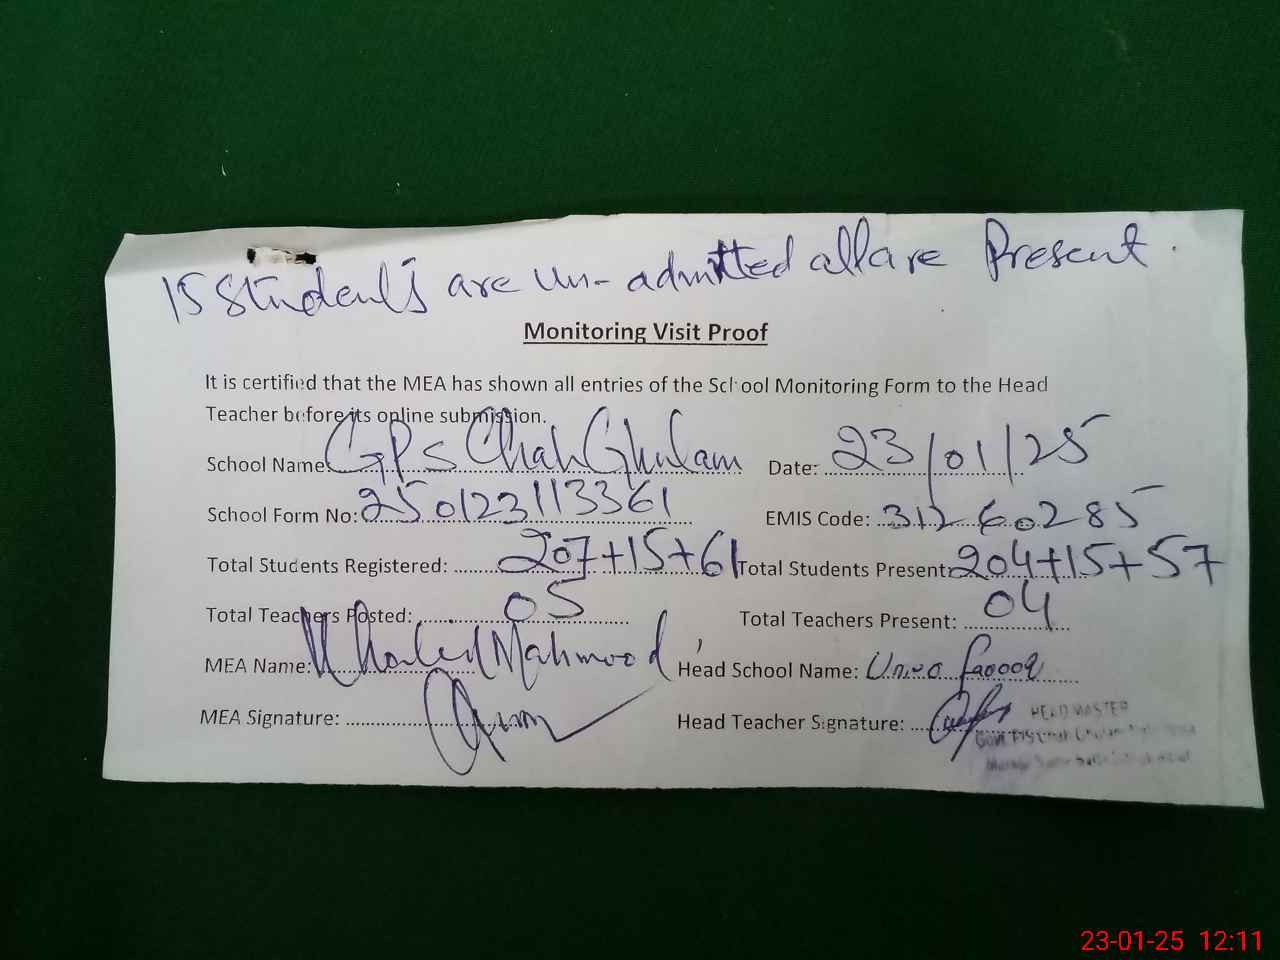 15 Students are un-admitted all are Present.
Monitoring Visit Proof
It is certified that the MEA has shown all entries of the School Monitoring Form to the Head
Teacher before its online submission.
School Name: GPS Chah Ghulam Date: 23/01/25
School Form No: 250123113361 EMIS Code: 31260285
Total Students Registered: 207+15+61 Total Students Present: 204+15+57
Total Teachers Posted: 05 Total Teachers Present: 04
MEA Name: Khalid Mahmood Head School Name: Farooq
MEA Signature: Head Teacher Signature:
HEAD MASTER
23-01-25 12:11